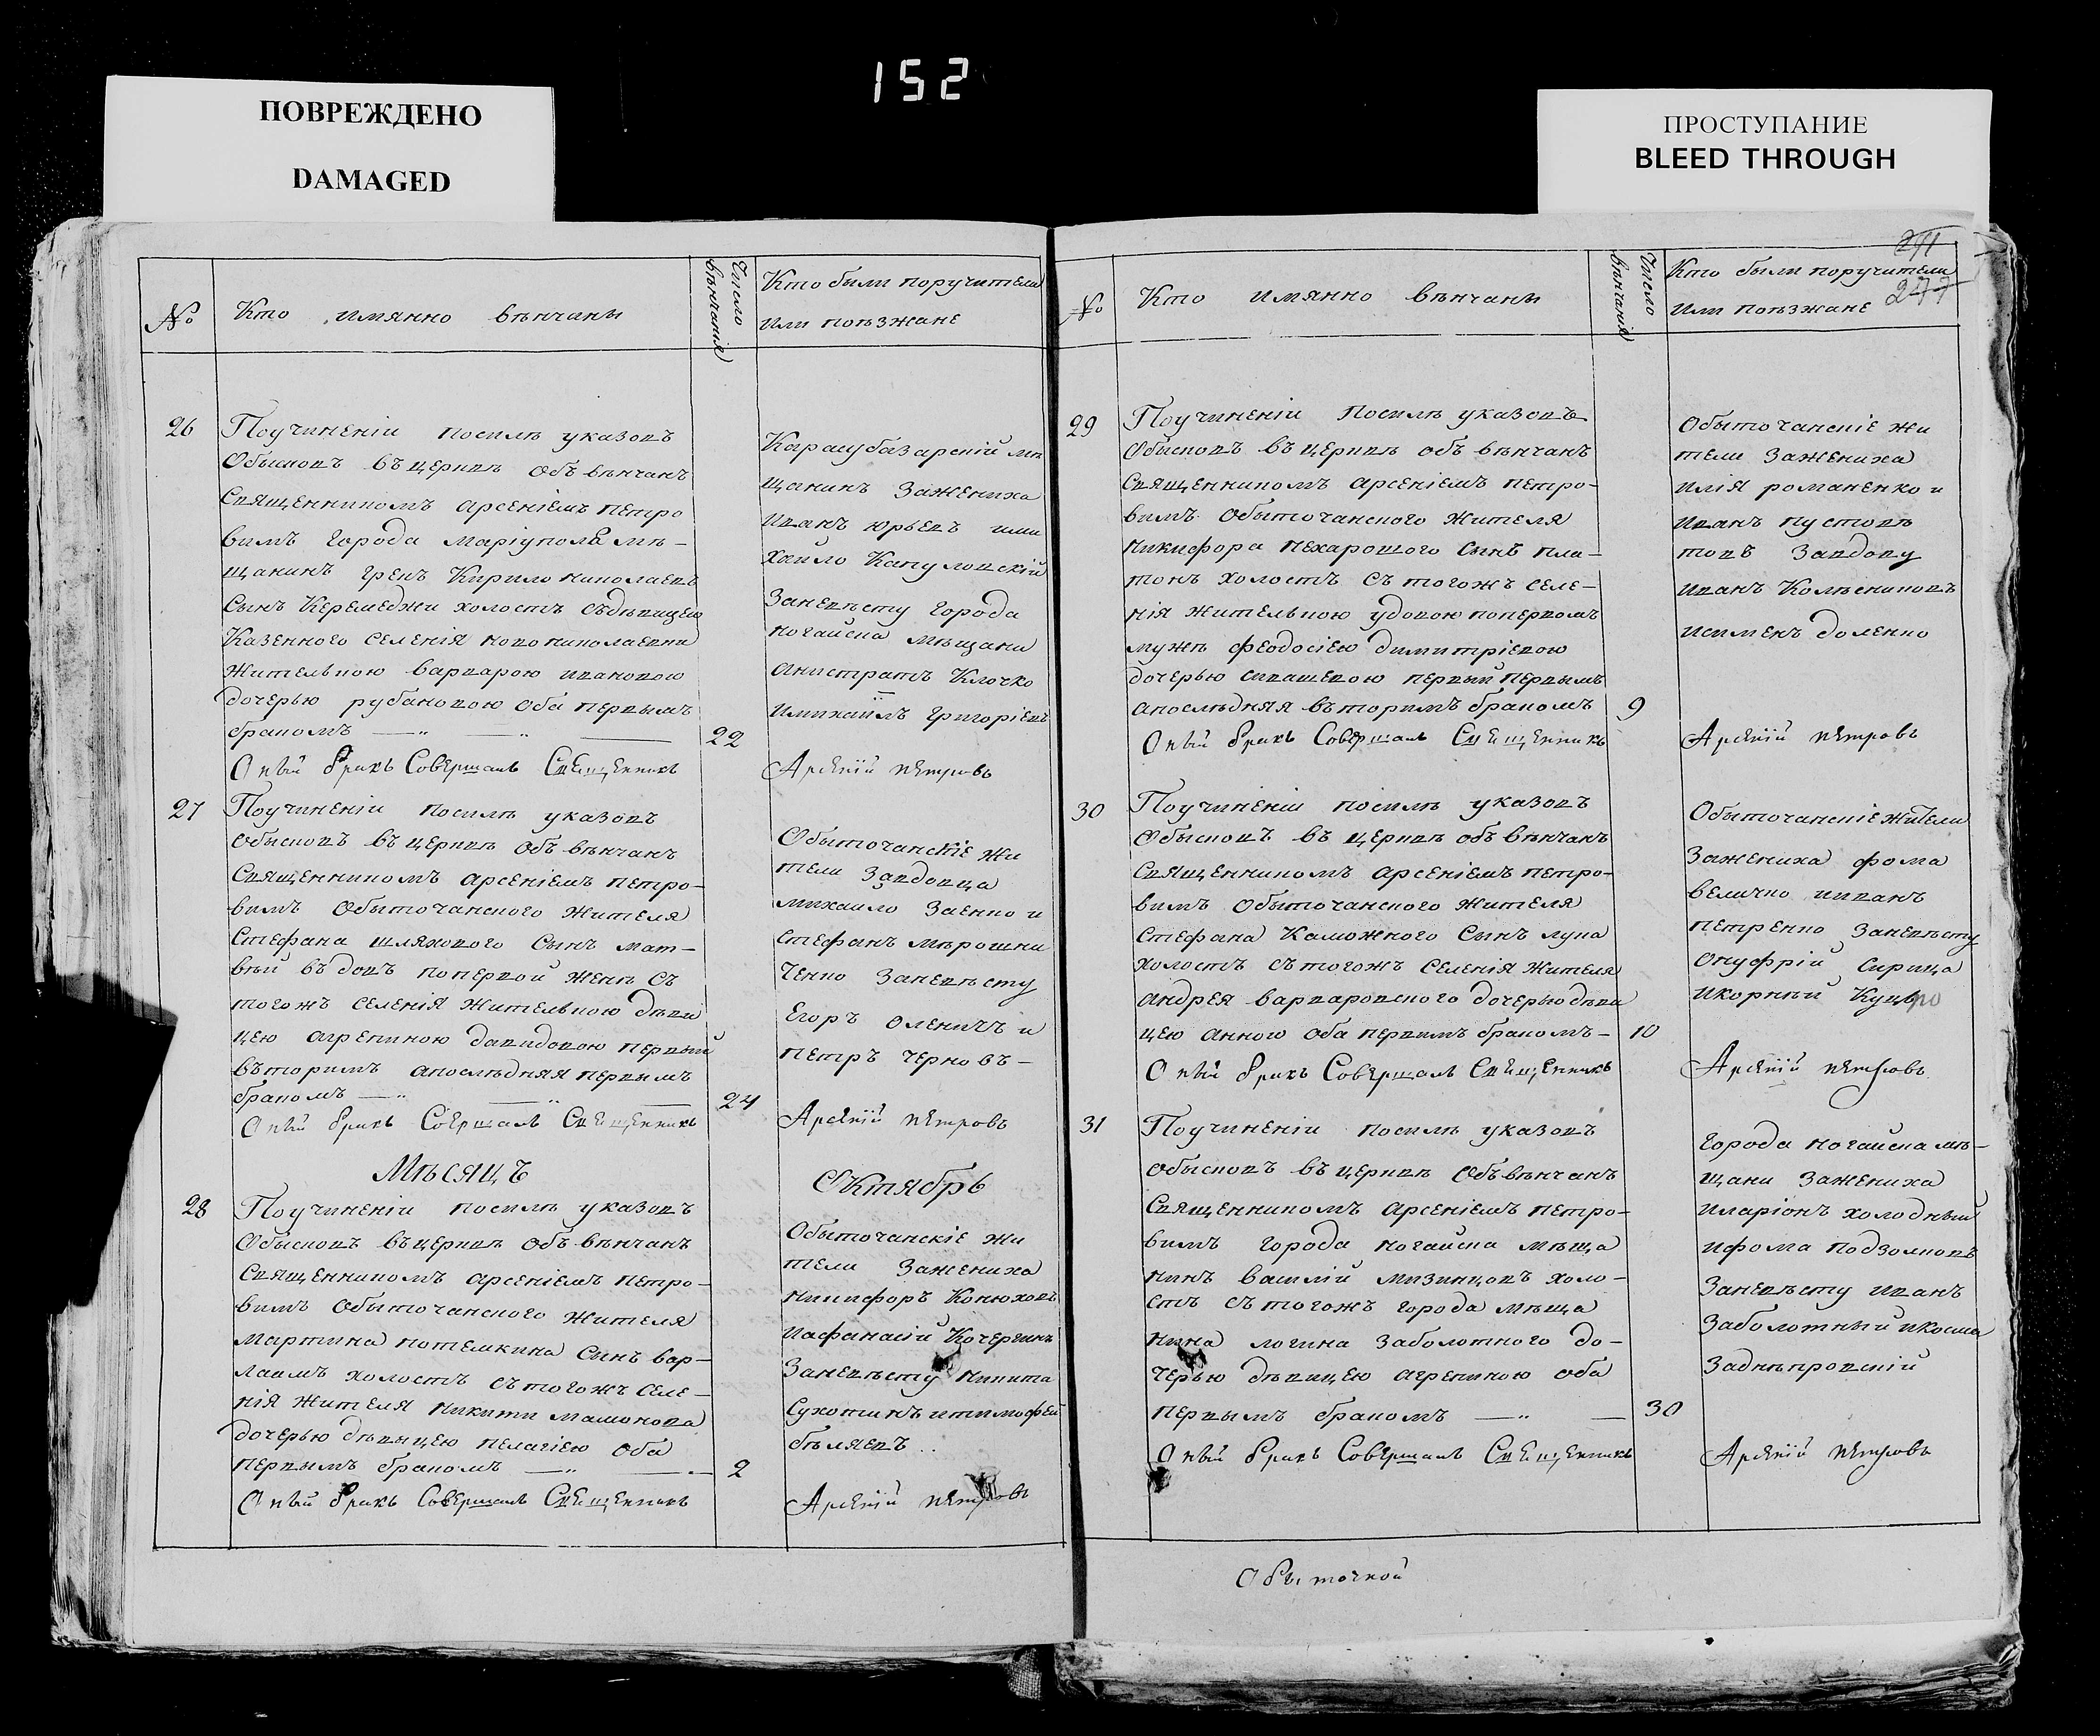 152
ПОВРЕЖДЕНО
DAMAGED
ПРОСТУПАНИЕ
BLEED THROUGH
№
Кто имянно вѣнчаны
Число вѣнчанія
Кто были поручители
или поѣзжане
26
Поучиненіи посилѣ указовъ
обысковъ въ церквѣ объ вѣнчанъ
Священникомъ арсеніемъ петро
вимъ города маріуполя мѣ-
щанинъ грекъ Кирило николаевъ
сынъ Керемеджи холостъ съдѣвицею
Казенного селенія новониколаевки
жителькою варварою ивановою
дочерью рубановою оба первымъ
бракомъ
22
Оный бракъ Совершалъ Священникъ
Карасубазарскій мѣ
щанинъ зажениха
иванъ юрьевъ ими
хаило Капуловскій
заневѣсту города
ногайска мѣщани
анистратъ Клочко
имихаилъ григоріевъ
Арсеній петровъ
27
Поучиненіи посилѣ указовъ
обысковъ въ церквѣ объ вѣнчанъ
Священникомъ арсеніемъ петро-
вимъ обыточанского жителя
Стефана шляхового сынъ мат-
вѣй въдовъ попервой женѣ съ
тогожъ селенія жителькою дѣви
цею агрепиною давидовою первый
въторимъ апослѣдняя первымъ
бракомъ
24
Оный бракъ Совершалъ Священникъ
Обыточанскіе жи
тели завдовца
михаило Заенко и
стефанъ мѣрошни
ченко заневѣсту
Егоръ оленичъ и
петръ черновъ-
Арсеній петровъ
Мѣсяцъ
Октябрь
28
Поучиненіи посилѣ указовъ
обысковъ въ церквѣ объ вѣнчанъ
Священникомъ арсеніемъ петро-
вимъ обыточанского жителя
мартина потемкина синъ вар-
лаамъ холостъ съ тогожъ селе-
нія жителя никити мамонова
дочерью дѣвицею пелагіею оба
первымъ бракомъ
2
Оный бракъ Совершалъ Священникъ
Обыточанскіе жи
тели зажениха
никифоръ Конюховъ
иафанасій Кочергинъ
заневѣсту никита
Сухотинъ итимофей
бѣляевъ
Арсеній петровъ
271
277
№
Кто имянно вѣнчаны
Число вѣнчанія
Кто были поручители
или поѣзжане
29
Поучиненіи посилѣ указовъ
обысковъ въ церквѣ объ вѣнчанъ
Священникомъ арсеніемъ петро-
вимъ обыточанского жителя
никифора нехарошого сынъ пла-
тонъ холостъ съ тогожъ селе-
нія жителькою удовою попервомъ
мужѣ феодосіею димитріевою
дочерью сивашевою первый первымъ
апослѣдняя въторимъ бракомъ
9
Оный бракъ Совершалъ Священникъ
Обыточанскіе жи
тели зажениха
илія романенко и
иванъ пустовѣ
товъ завдову
иванъ Колѣсниковъ
исименъ доленко
Арсеній петровъ
30
Поучиненіи посилѣ указовъ
обысковъ въ церквѣ объ вѣнчанъ
Священникомъ арсеніемъ петро-
вимъ обыточанского жителя
стефана Каможного сынъ лука
холостъ съ тогожъ селенія жителя
андрея варваровского дочерью дѣви
цею анною оба первимъ бракомъ-
10
Оный бракъ Совершалъ Священникъ
Обыточанскіе жители
зажениха фома
величко ииванъ
петренко заневѣсту
онуфрій сирица
икорный
Арсеній петровъ
31
Поучиненіи посилѣ указовъ
обысковъ въ церквѣ объвѣнчанъ
Священникомъ арсеніемъ петро-
вимъ города ногайска мѣща
нинъ василій мизинцовъ холо-
стъ съ тогожъ города мѣща
нина логина заболотного до-
черью дѣвицею агрепиною оба
первымъ бракомъ
30
Оный бракъ Совершалъ Священникъ
города ногайска мѣ-
щани зажениха
иларіонъ холодный
ифома подзолковъ
заневѣсту иванъ
заболотный икосма
заднѣпровскій
Арсеній петровъ
Обыточной